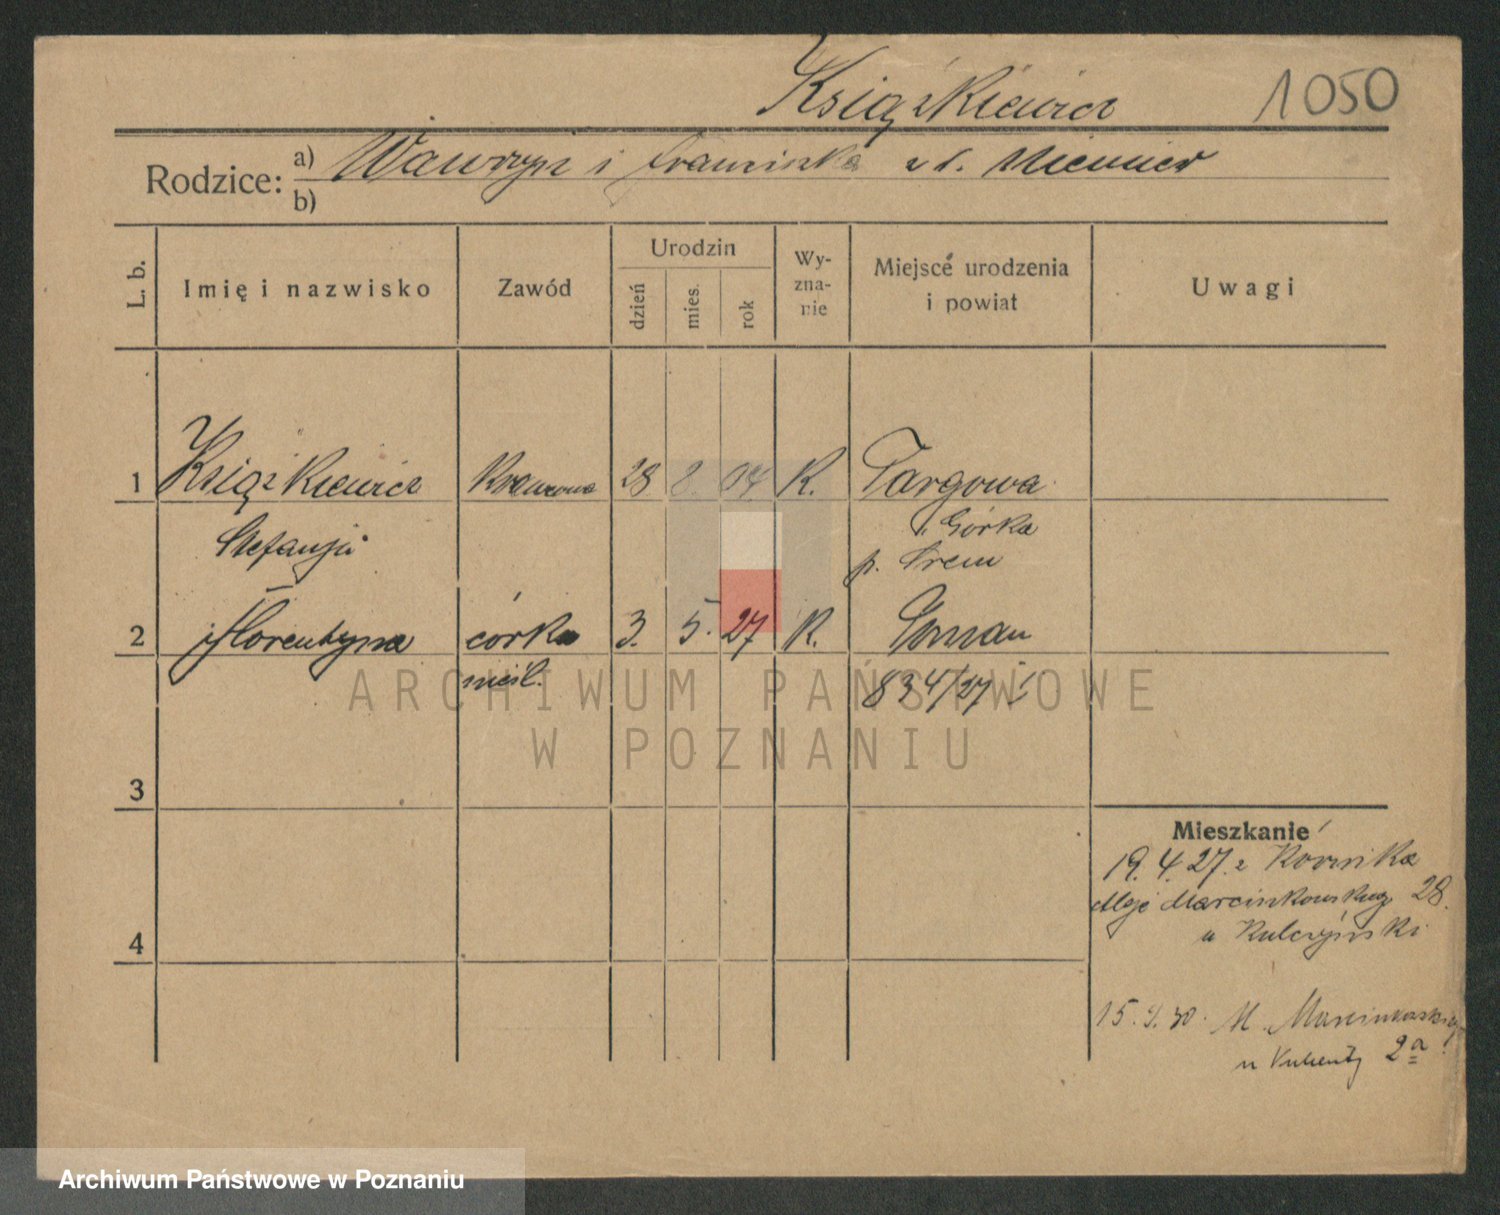 Książkiewicz 1050
Rodzice: a) Wawrzyn i Franciszka z d. Niemier
b)
L. b. Imię i nazwisko Zawód Urodzin dzień mies. rok Wyznanie Miejsce urodzenia i powiat Uwagi
1 Książkiewicz Krawcowa 28 8. 04 K. Targowa
Stefanja Górka
p. Śrem
2 Florentyna córka 3. 5. 27 K. Poznań
nieśl. 834/27 I
ARCHIWUM PAŃSTWOWE
W POZNANIU
3
Mieszkanie
19. 4. 27. z Kórnika
Marcinkowskiego 28.
u Kulczyński
4
15. 30. M. Marcinkowskiego
u 2a
Archiwum Państwowe w Poznaniu